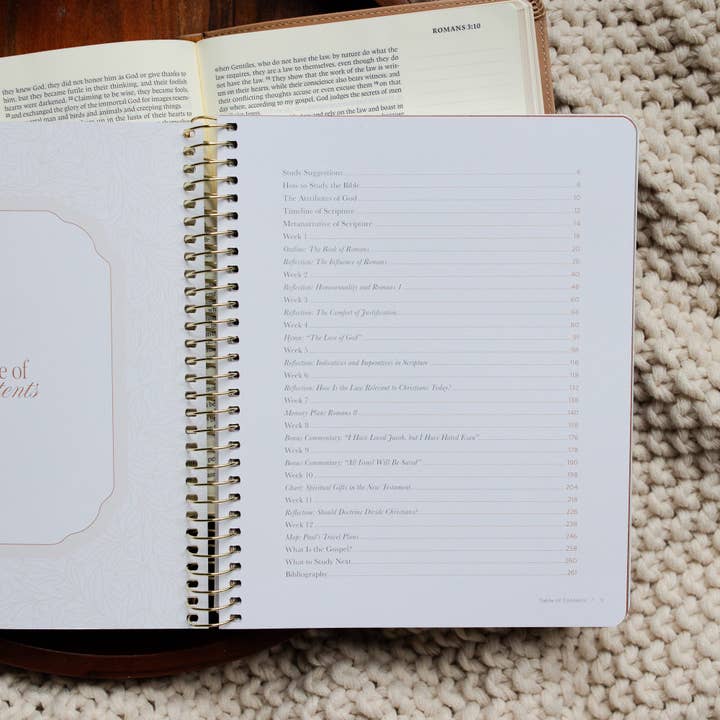 ROMANS 3:10
they knew God, they did not honor him as God or give thanks to
him, but they became futile in their thinking, and their foolish
hearts were darkened. 22 Claiming to be wise, they became fools,
23 and exchanged the glory of the immortal God for images resem-
mortal man and birds and animals and creeping things.
up in the lusts of their hearts to
when Gentiles, who do not have the law, by nature do what the
law requires, they are a law to themselves, even though they do
not have the law. 15 They show that the work of the law is writ-
ten on their hearts, while their conscience also bears witness, and
their conflicting thoughts accuse or even excuse them 16 on that
day when, according to my gospel, God judges the secrets of men
rely on the law and boast in
e of
tents
Study Suggestions
How to Study the Bible
The Attributes of God 10
Timeline of Scripture 12
Metanarrative of Scripture 14
Week 1 18
Outline: The Book of Romans 20
Reflection: The Influence of Romans
Week 2 40
Reflection: Homosexuality and Romans 1 48
Week 3 60
Reflection: The Comfort of Justification 68
Week 4 80
Hymn: "The Love of God" 91
Week 5 98
Reflection: Indicatives and Imperatives in Scripture 116
Week 6 118
Reflection: How Is the Law Relevant to Christians Today? 132
Week 7
Memory Plan: Romans 8 140
Week 8 158
Bonus Commentary: "I Have Loved Jacob, but I Have Hated Esau" 176
Week 9 178
Bonus Commentary: "All Israel Will Be Saved" 190
Week 10 198
Chart: Spiritual Gifts in the New Testament 204
Week 11 218
Reflection: Should Doctrine Divide Christians? 226
Week 12 238
Map: Paul's Travel Plans 246
What Is the Gospel? 258
What to Study Next 260
Bibliography 261
Table of Contents /